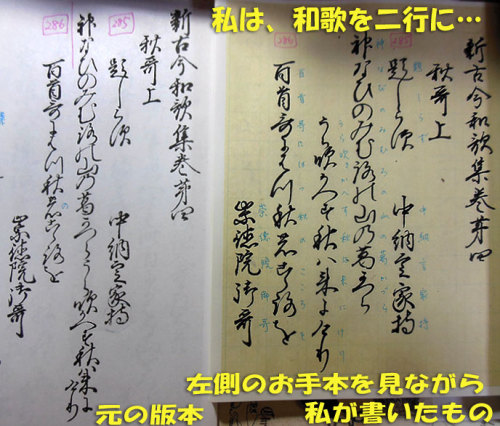 私は、和歌を二行に…
新古今和歌集巻第四
秋哥上
285
題しらす 中納言家持
神なひのみむろの山の葛かつら
うら吹かへす秋は来にけり
286
百首哥にはつ秋のこゝろを
崇徳院御哥
新古今和歌集巻第四
秋哥上
285
題しらす 中納言家持
神なひのみむろの山の葛かつらうら吹かへす秋は来にけり
286
百首哥にはつ秋のこゝろを
崇徳院御哥
左側のお手本を見ながら
元の版本 私が書いたもの